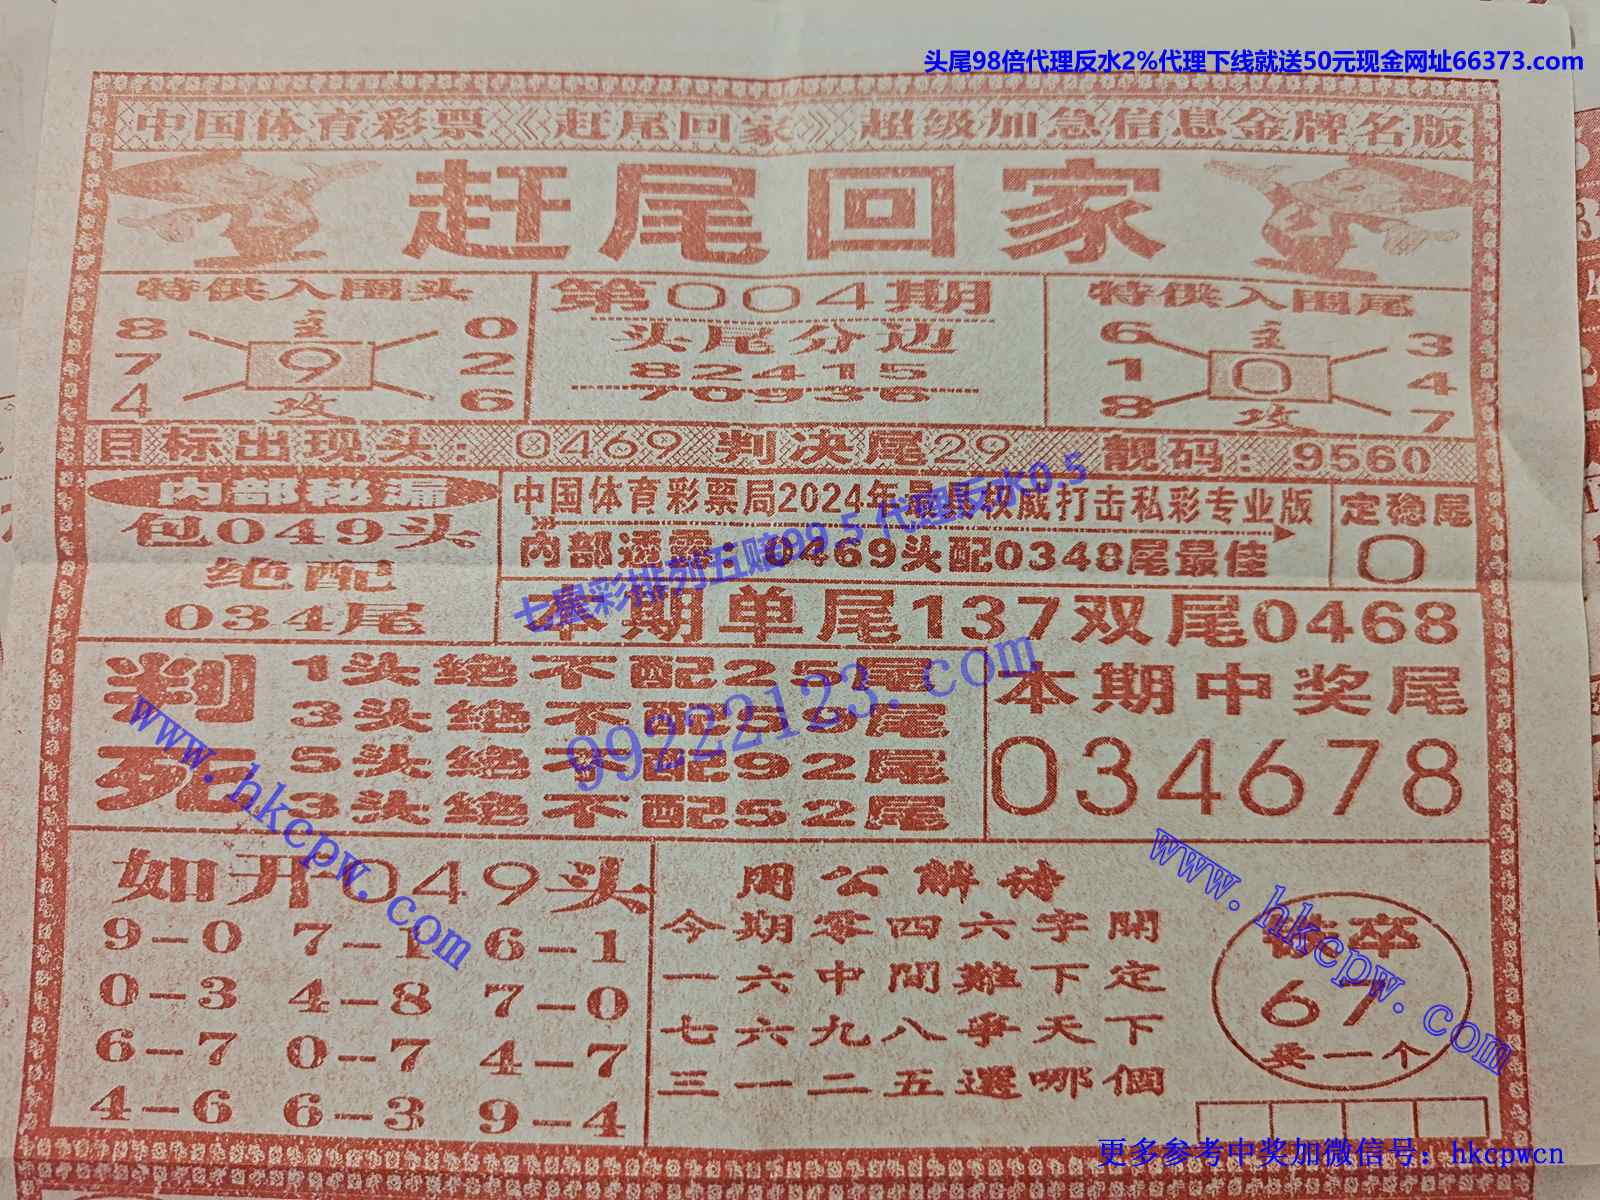 头尾98倍代理反水2%代理下线就送50元现金网址66373.com
中国体育彩票《赶尾回家》超级加急信息金牌名版
赶尾回家
特供入围头
8 主 0
7 9 2
4 攻 6
第004期
头尾分边
82415
70936
特供入围尾
6 主 3
1 0 4
8 攻 7
目标出现头：0469 判决尾29 靓码：9560
内部秘漏
包049头
绝配
034尾
中国体育彩票局2024年最具权威打击私彩专业版
内部透露：0469头配0348尾最佳
定稳尾
0
本期单尾137双尾0468
七星彩排列五赔99.5 代理反水0.5
99222123.com
判死
1头绝不配25尾
3头绝不配59尾
5头绝不配92尾
3头绝不配52尾
本期中奖尾
034678
www.hkcpw.com
如开049头
9-0 7-1 6-1
0-3 4-8 7-0
6-7 0-7 4-7
4-6 6-3 9-4
周公解诗
今期零四六字開
一六中間難下定
七六九八爭天下
三一二五選哪個
www.hkcpw.com
卒
67
卖一个
更多参考中奖加微信号：hkcpwcn